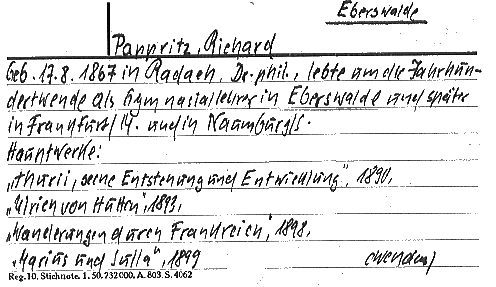 Eberswalde
Pappritz, Richard
Geb. 17.8. 1867 in Radach, Dr. phil., lebte um die Jahrhun-
dertwende als Gymnasiallehrer in Eberswalde und später
in Frankfurt/M. und in Naumburg/S.
Hauptwerke:
„Thurii, seine Entstehung und Entwicklung", 1890,
„Ulrich von Hutten", 1893,
„Wanderungen durch Frankreich", 1898,
„Marius und Sulla", 1899
Reg.10. Stichnote. 1. 50. 732000. A. 803. S. 4062